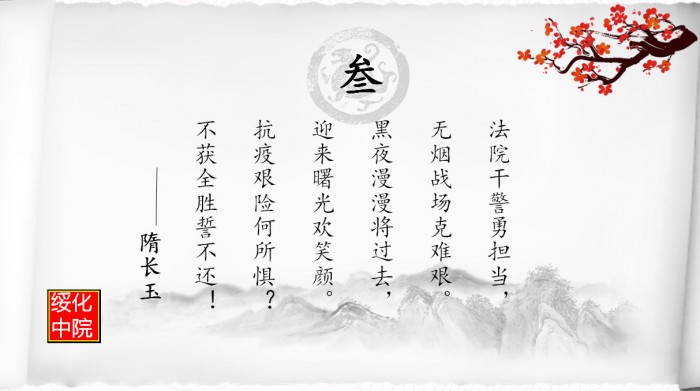 叁
法院干警勇担当，
无烟战场克难艰。
黑夜漫漫将过去，
迎来曙光欢笑颜。
抗疫艰险何所惧？
不获全胜誓不还！
——隋长玉
绥化
中院